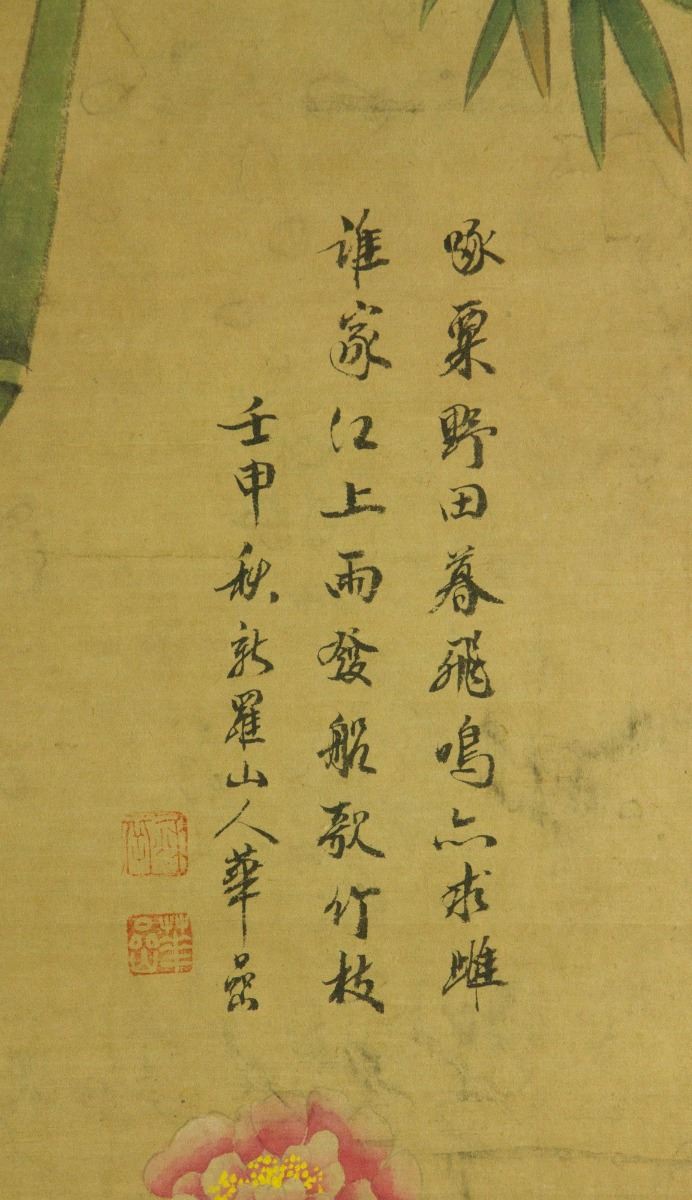 啄粟野田暮飛鳴亦求雌
誰家江上雨發船歌竹枝
壬申秋新羅山人華嵒
華嵒